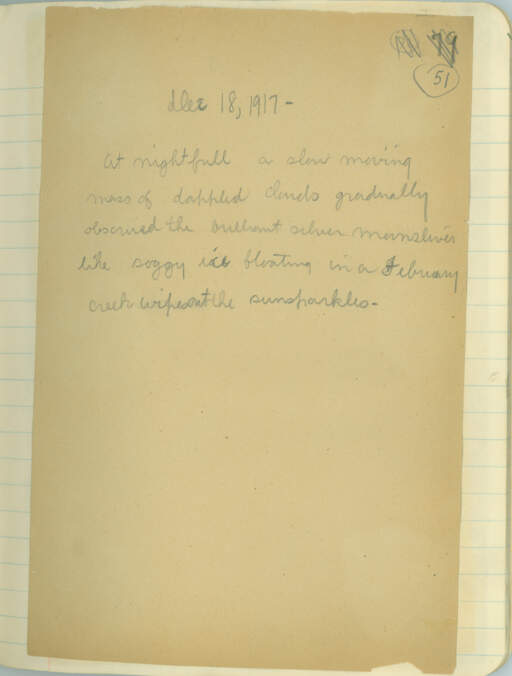 51
Dec 18, 1917 -
At nightfall a slow moving
mass of dappled clouds gradually
obscured the brilliant silver moonsliver
like soggy ice bloating in a February
creek wipes out the sunsparkles -